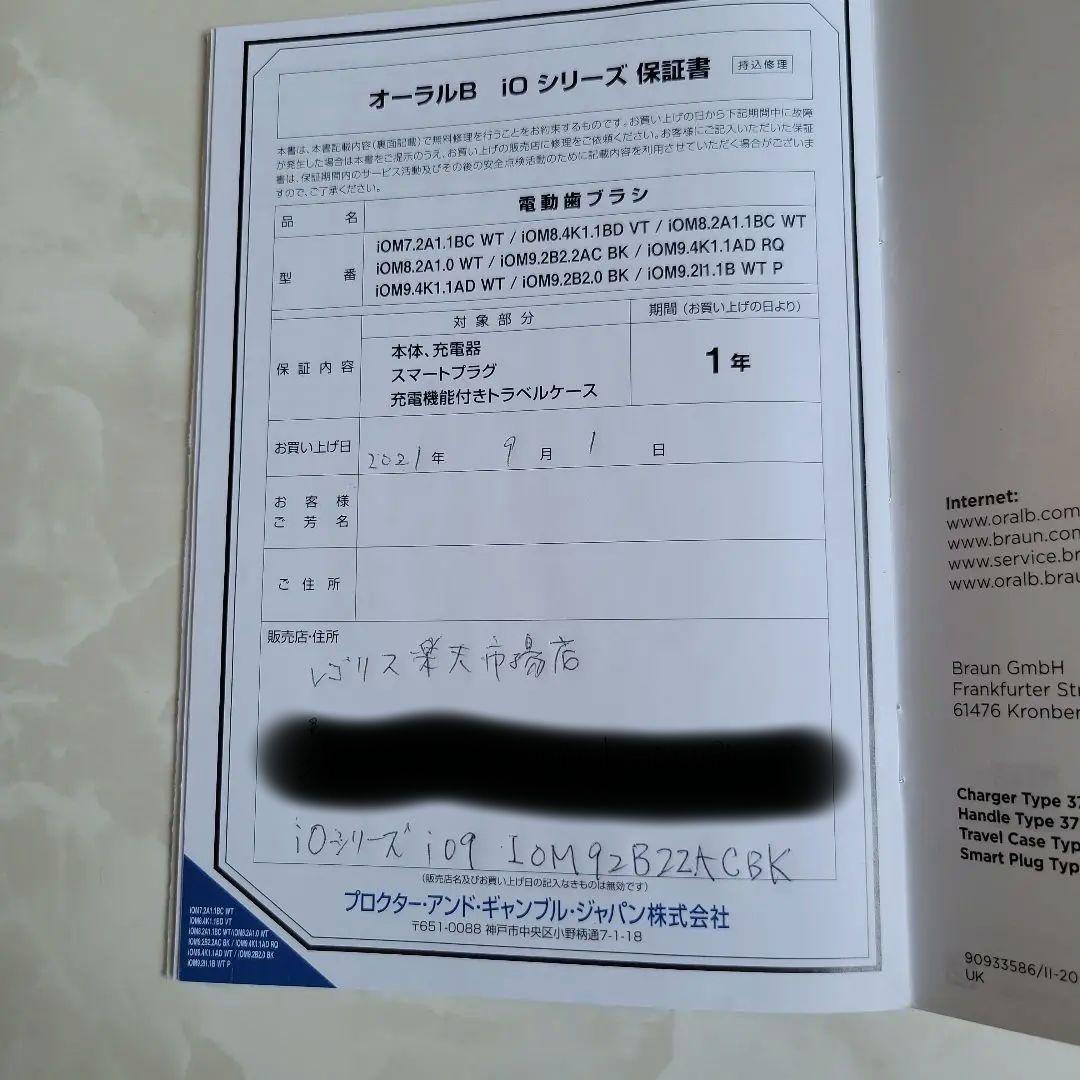 オーラルB iO シリーズ 保証書 持込修理
本書は、本書記載内容(裏面記載)で無料修理を行うことをお約束するものです。お買い上げの日から下記期間中に故障
が発生した場合は本書をご提示のうえ、お買い上げの販売店に修理をご依頼ください。お客様にご記入いただいた保証
書は、保証期間内のサービス活動及びその後の安全点検活動のために記載内容を利用させていただく場合がございま
すので、ご了承ください。
品名 電動歯ブラシ
型番
iOM7.2A1.1BC WT / iOM8.4K1.1BD VT / iOM8.2A1.1BC WT
iOM8.2A1.0 WT / iOM9.2B2.2AC BK / iOM9.4K1.1AD RQ
iOM9.4K1.1AD WT / iOM9.2B2.0 BK / iOM9.2I1.1B WT P
保証内容
対象部分 期間(お買い上げの日より)
本体、充電器
スマートプラグ
充電機能付きトラベルケース
1年
お買い上げ日 2021年 9月 1日
お客様
ご芳名
ご住所
販売店・住所
レゴリス楽天市場店
iOシリーズ iO9 IOM92B22ACBK
(販売店名及びお買い上げ日の記入なきものは無効です)
プロクター・アンド・ギャンブル・ジャパン株式会社
〒651-0088 神戸市中央区小野柄通7-1-18
iOM7.2A1.1BC WT
iOM8.4K1.1BD VT
iOM8.2A1.1BC WT/iOM8.2A1.0 WT
iOM9.2B2.2AC BK / iOM9.4K1.1AD RQ
iOM9.4K1.1AD WT / iOM9.2B2.0 BK
iOM9.2I1.1B WT P
Internet:
www.oralb.com
www.braun.com
www.service.br
www.oralb.brau
Braun GmbH
Frankfurter Str
61476 Kronber
Charger Type 37
Handle Type 37
Travel Case Typ
Smart Plug Typ
90933586/II-20
UK